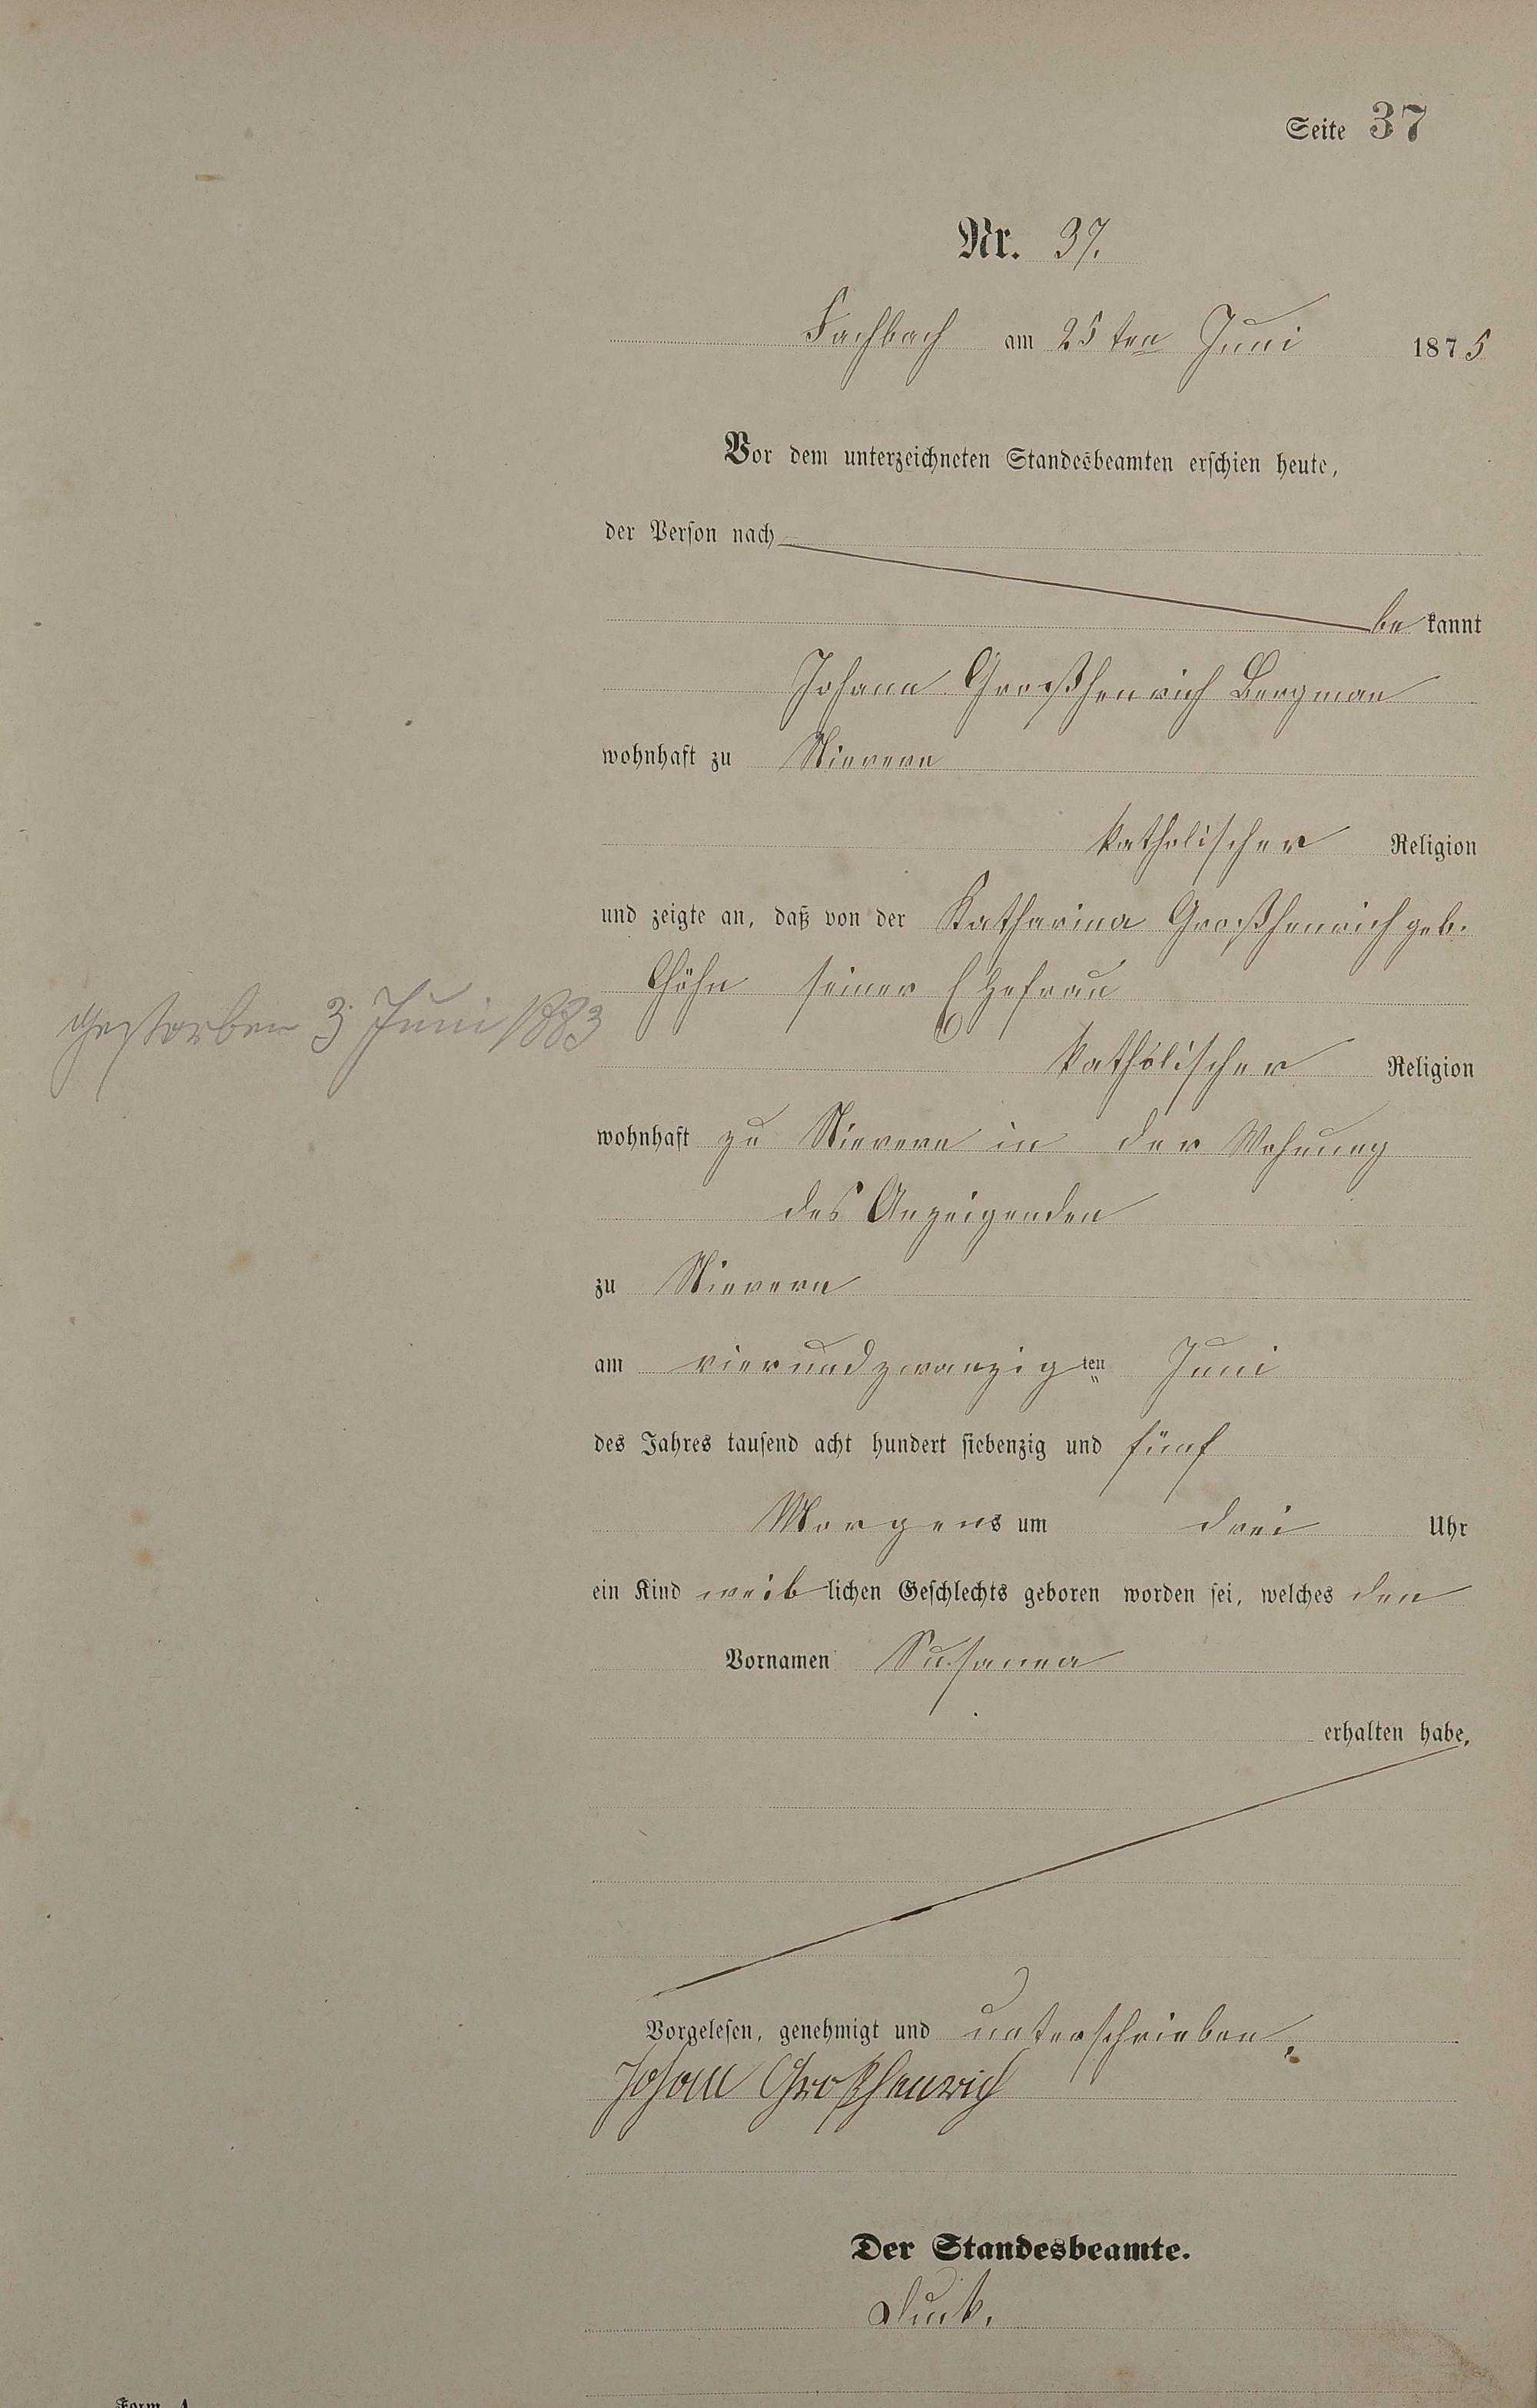 Seite 37
Nr. 37.
Fachbach am 25ten Juni 1875
Vor dem unterzeichneten Standesbeamten erschien heute,
der Person nach
be kannt
Johann Großhenrich Bergman
wohnhaft zu Nievern
katholischer Religion
und zeigte an, daß von der Katharina Großhenrich geb.
seiner Ehefrau
gestorben 3 Juni 1883
katholischer Religion
wohnhaft zu Nievern in der Wohnung
des Anzeigenden
zu Nievern
am vierundzwanzig ten Juni
des Jahres tausend acht hundert siebenzig und fünf
Morgens um drei Uhr
ein Kind weiblichen Geschlechts geboren worden sei, welches den
Vornamen Susanna
erhalten habe,
Vorgelesen, genehmigt und unterschrieben.
Johann Großhenrich
Der Standesbeamte.
Form A